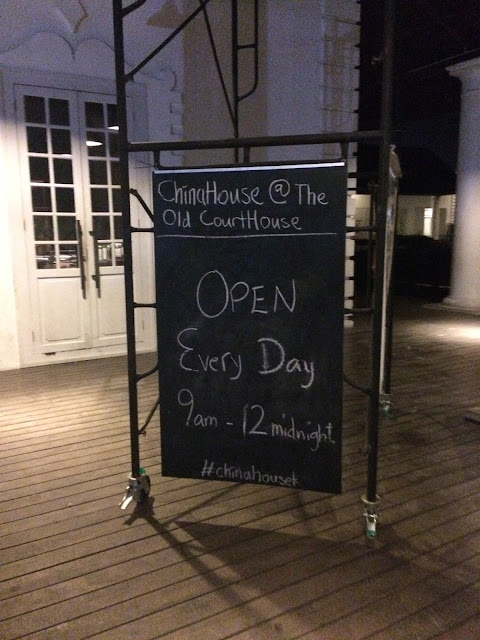 ChinaHouse @ The
Old CourtHouse
OPEN
Every Day
9am - 12 midnight
#chinahousek